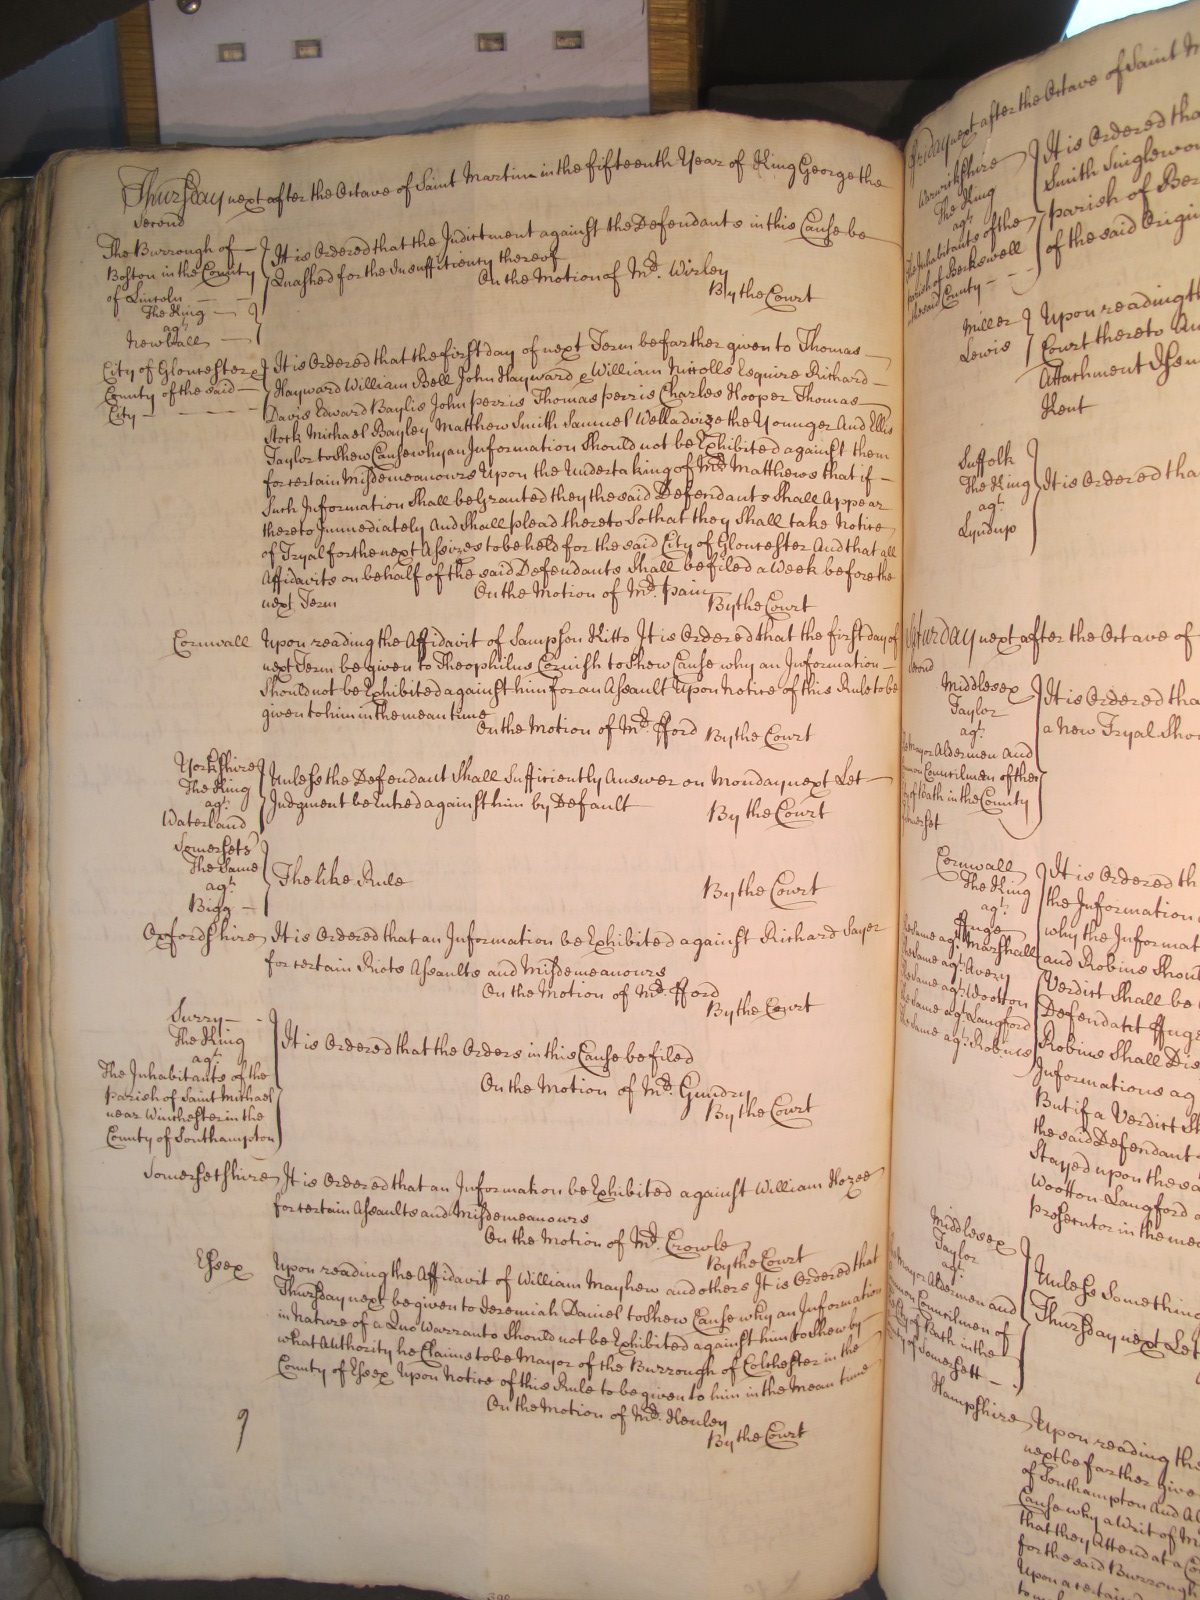 Thursday next after the Octave of Saint Martin in the fifteenth Year of King George the
Second
The Burrough of
Boston in the County
of Lincoln
The King
agt.
Newball
It is Ordered that the Indictment against the Defendants in this Cause be
Quashed for the Insufficiency thereof
On the Motion of Mr. Wirley
By the Court
City of Gloucester &
County of the said
City
It is Ordered that the first day of next Term be farther given to Thomas
Hayward William Bell John Hayward & William Niccolls Esquire Richard
Davis Edward Baylis John Perris Thomas Perris Charles Hooper Thomas
Stock Michael Bayley Matthew Smith Samuel Welladvize the Younger And Ellis
Taylor to shew Cause why an Information Should not be Exhibited against them
for certain Misdemeanours Upon the Undertaking of Mr. Matthews that if
Such Information Shall be Granted they the said Defendants Shall Appear
thereto Immediately And Shall plead thereto So that they Shall take Notice
of Tryal for the next Assizes to be held for the said City of Gloucester And that all
Affidavits on behalf of the said Defendants Shall be filed a Week before the
next Term
On the Motion of Mr. Pain
By the Court
Cornwall
Upon reading the Affidavit of Sampson Kitto It is Ordered that the first day of
next Term be given to Theophilus Cornish to shew Cause why an Information
Should not be Exhibited against him for an Assault Upon Notice of this Rule to be
given to him in the mean time
On the Motion of Mr. fford
By the Court
Yorkshire
The King
agt.
Waterland
Unless the Defendant Shall Sufficiently Answer on Monday next Let
Judgment be Entred against him by Default
By the Court
Somersets
The Same
agt.
Bigg
The like Rule
By the Court
Oxfordshire
It is Ordered that an Information be Exhibited against Richard Sayer
for certain Riots Assaults and Misdemeanours
On the Motion of Mr. fford
By the Court
Surry
The King
agt.
The Inhabitants of the
parish of Saint Michael
near Winchester in the
County of Southampton
It is Ordered that the Orders in this Cause be filed
On the Motion of Mr. Gundry
By the Court
Somersetshire
It is Ordered that an Information be Exhibited against William Hozee
for certain Assaults and Misdemeanours
On the Motion of Mr. Crowle
By the Court
Essex
Upon reading the Affidavit of William Mayhew and others It is Ordered that
Thursday next be given to Jeremiah Daniel to shew Cause why an Information
in Nature of a Quo Warranto Should not be Exhibited against him to shew by
what Authority he Claims to be Mayor of the Burrough of Colchester in the
County of Essex Upon Notice of this Rule to be given to him in the mean time
On the Motion of Mr. Henley
By the Court
Friday next after the Octave of Saint M
Warwickshire
The King
agt.
The Inhabitants of the
parish of Berkswell
the said County
It is Ordered tha
Smith Singlewo
parish of Ber
of the said Origin
Miller
Lewis
Upon reading th
Court thereto An
Attachment Issu
Kent
Suffolk
The King
agt.
Lyndup
It is Ordered tha
Saturday next after the Octave of
Second
Middlesex
Taylor
agt.
Mayor Aldermen And
Councilmen of the
of Bath in the County
Somerset
It is Ordered tha
a new Tryal Shou
Cornwall
The King
agt.
ffuge
Same agt. Marshall
Same agt. Avery
Same agt. Wootton
Same agt. Langford
The Same agt. Robins
It is Ordered th
the Information
why the Informat
and Robins Shoul
Verdict Shall be
Defendant ffuge
Robins Shall Dis
Informations ag
But if a Verdict Sh
the said Defendant
Stayed upon the sa
Wootton Langford
prosecutor in the mea
Middlesex
Taylor
agt.
Mayor Aldermen and
Councilmen of
City of Bath in the
County of Somersett
Unless Something
Thursday next Let
Hampshire
Upon reading the
next be farther give
of Southampton And Al
Cause why a Writ of M
that they Attend at a Co
for the said Burrough
Upon a certain